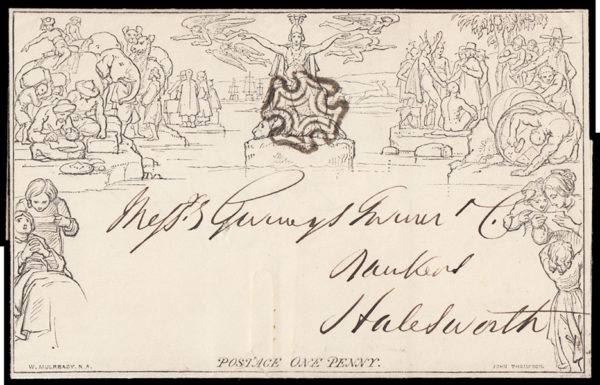 Messrs Gurneys Turner & Co.
Bankers
Halesworth
POSTAGE ONE PENNY.
W. MULREADY, R.A.
JOHN THOMPSON.